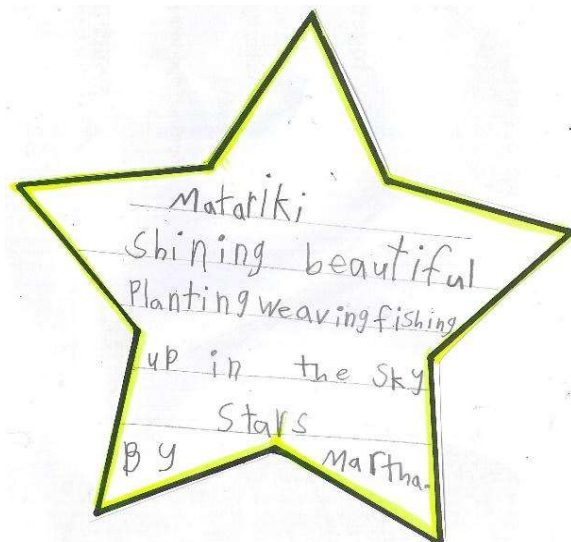 Matariki
Shining beautiful
Planting weaving fishing
up in the sky
Stars
By Martha.